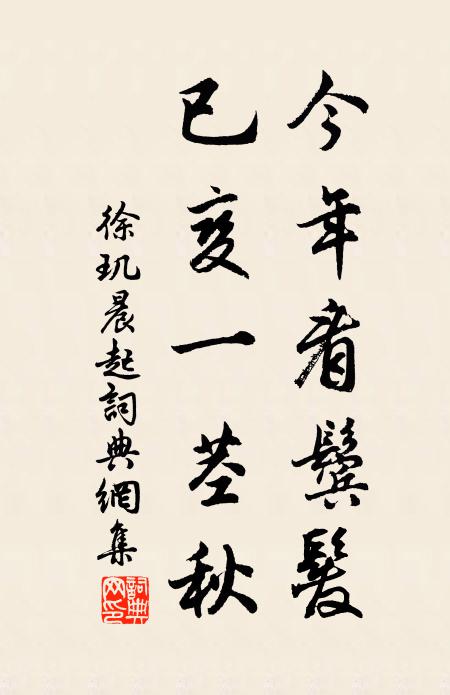 今年看鬢髮
已変一莖秋
徐玑晨起詞典網集
詞典网印